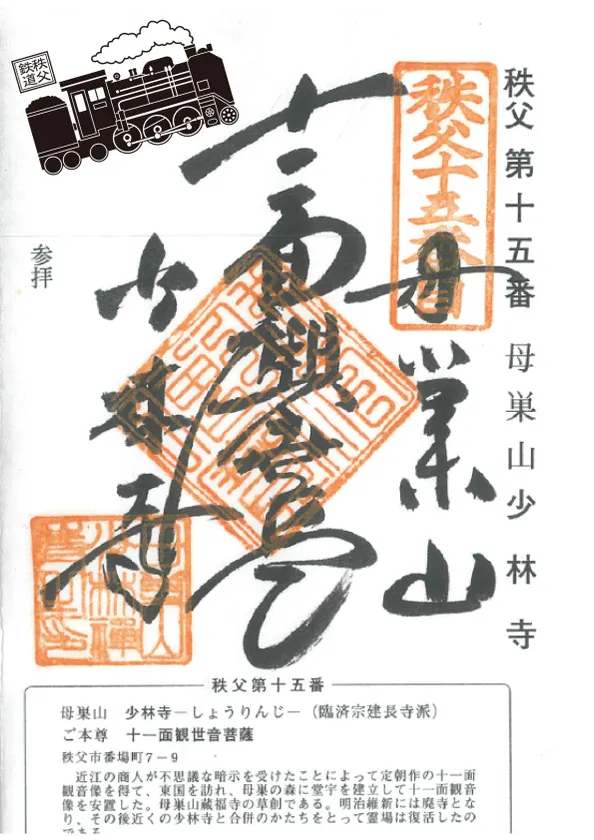 秩父
鉄道
秩父 第十五番 母巣山少林寺
秩父十五番
母巣山
十一面観世音
少林寺
参拝
秩父第十五番
母巣山 少林寺－しょうりんじ－(臨済宗建長寺派)
ご本尊 十一面観世音菩薩
秩父市番場町7－9
近江の商人が不思議な暗示を受けたことによって定朝作の十一面
観音像を得て、東国を訪れ、母巣の森に堂宇を建立して十一面観音
像を安置した。母巣山蔵福寺の草創である。明治維新には廃寺とな
り、その後近くの少林寺と合併のかたちをとって霊場は復活したの
である